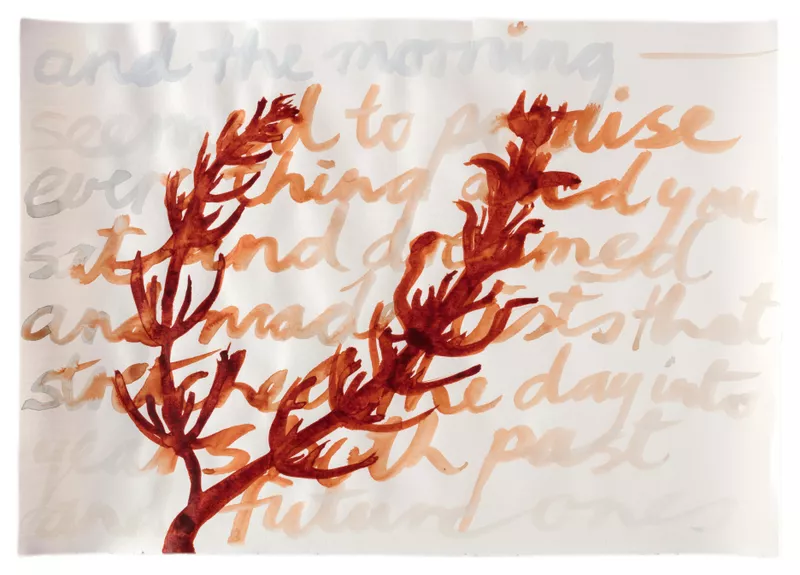 and the morning
seemed to promise
everything and you
sat and dreamed
and made lists that
stretched the day into
years both past
and future ones